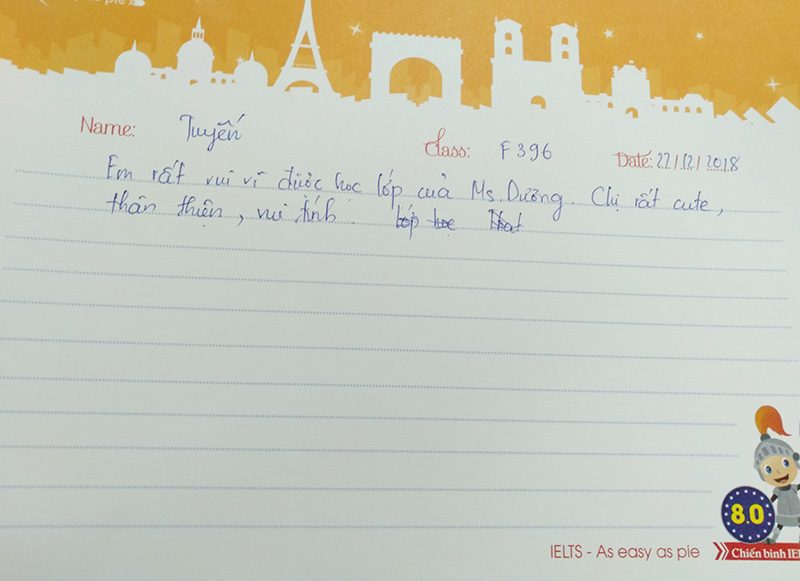 Name: Tuyến Class: F396 Date: 27/12/2018
Em rất vui vì được học lớp của Ms. Dương. Chị rất cute,
thân thiện, vui tính.
8.0
IELTS - As easy as pie
Chiến binh IE